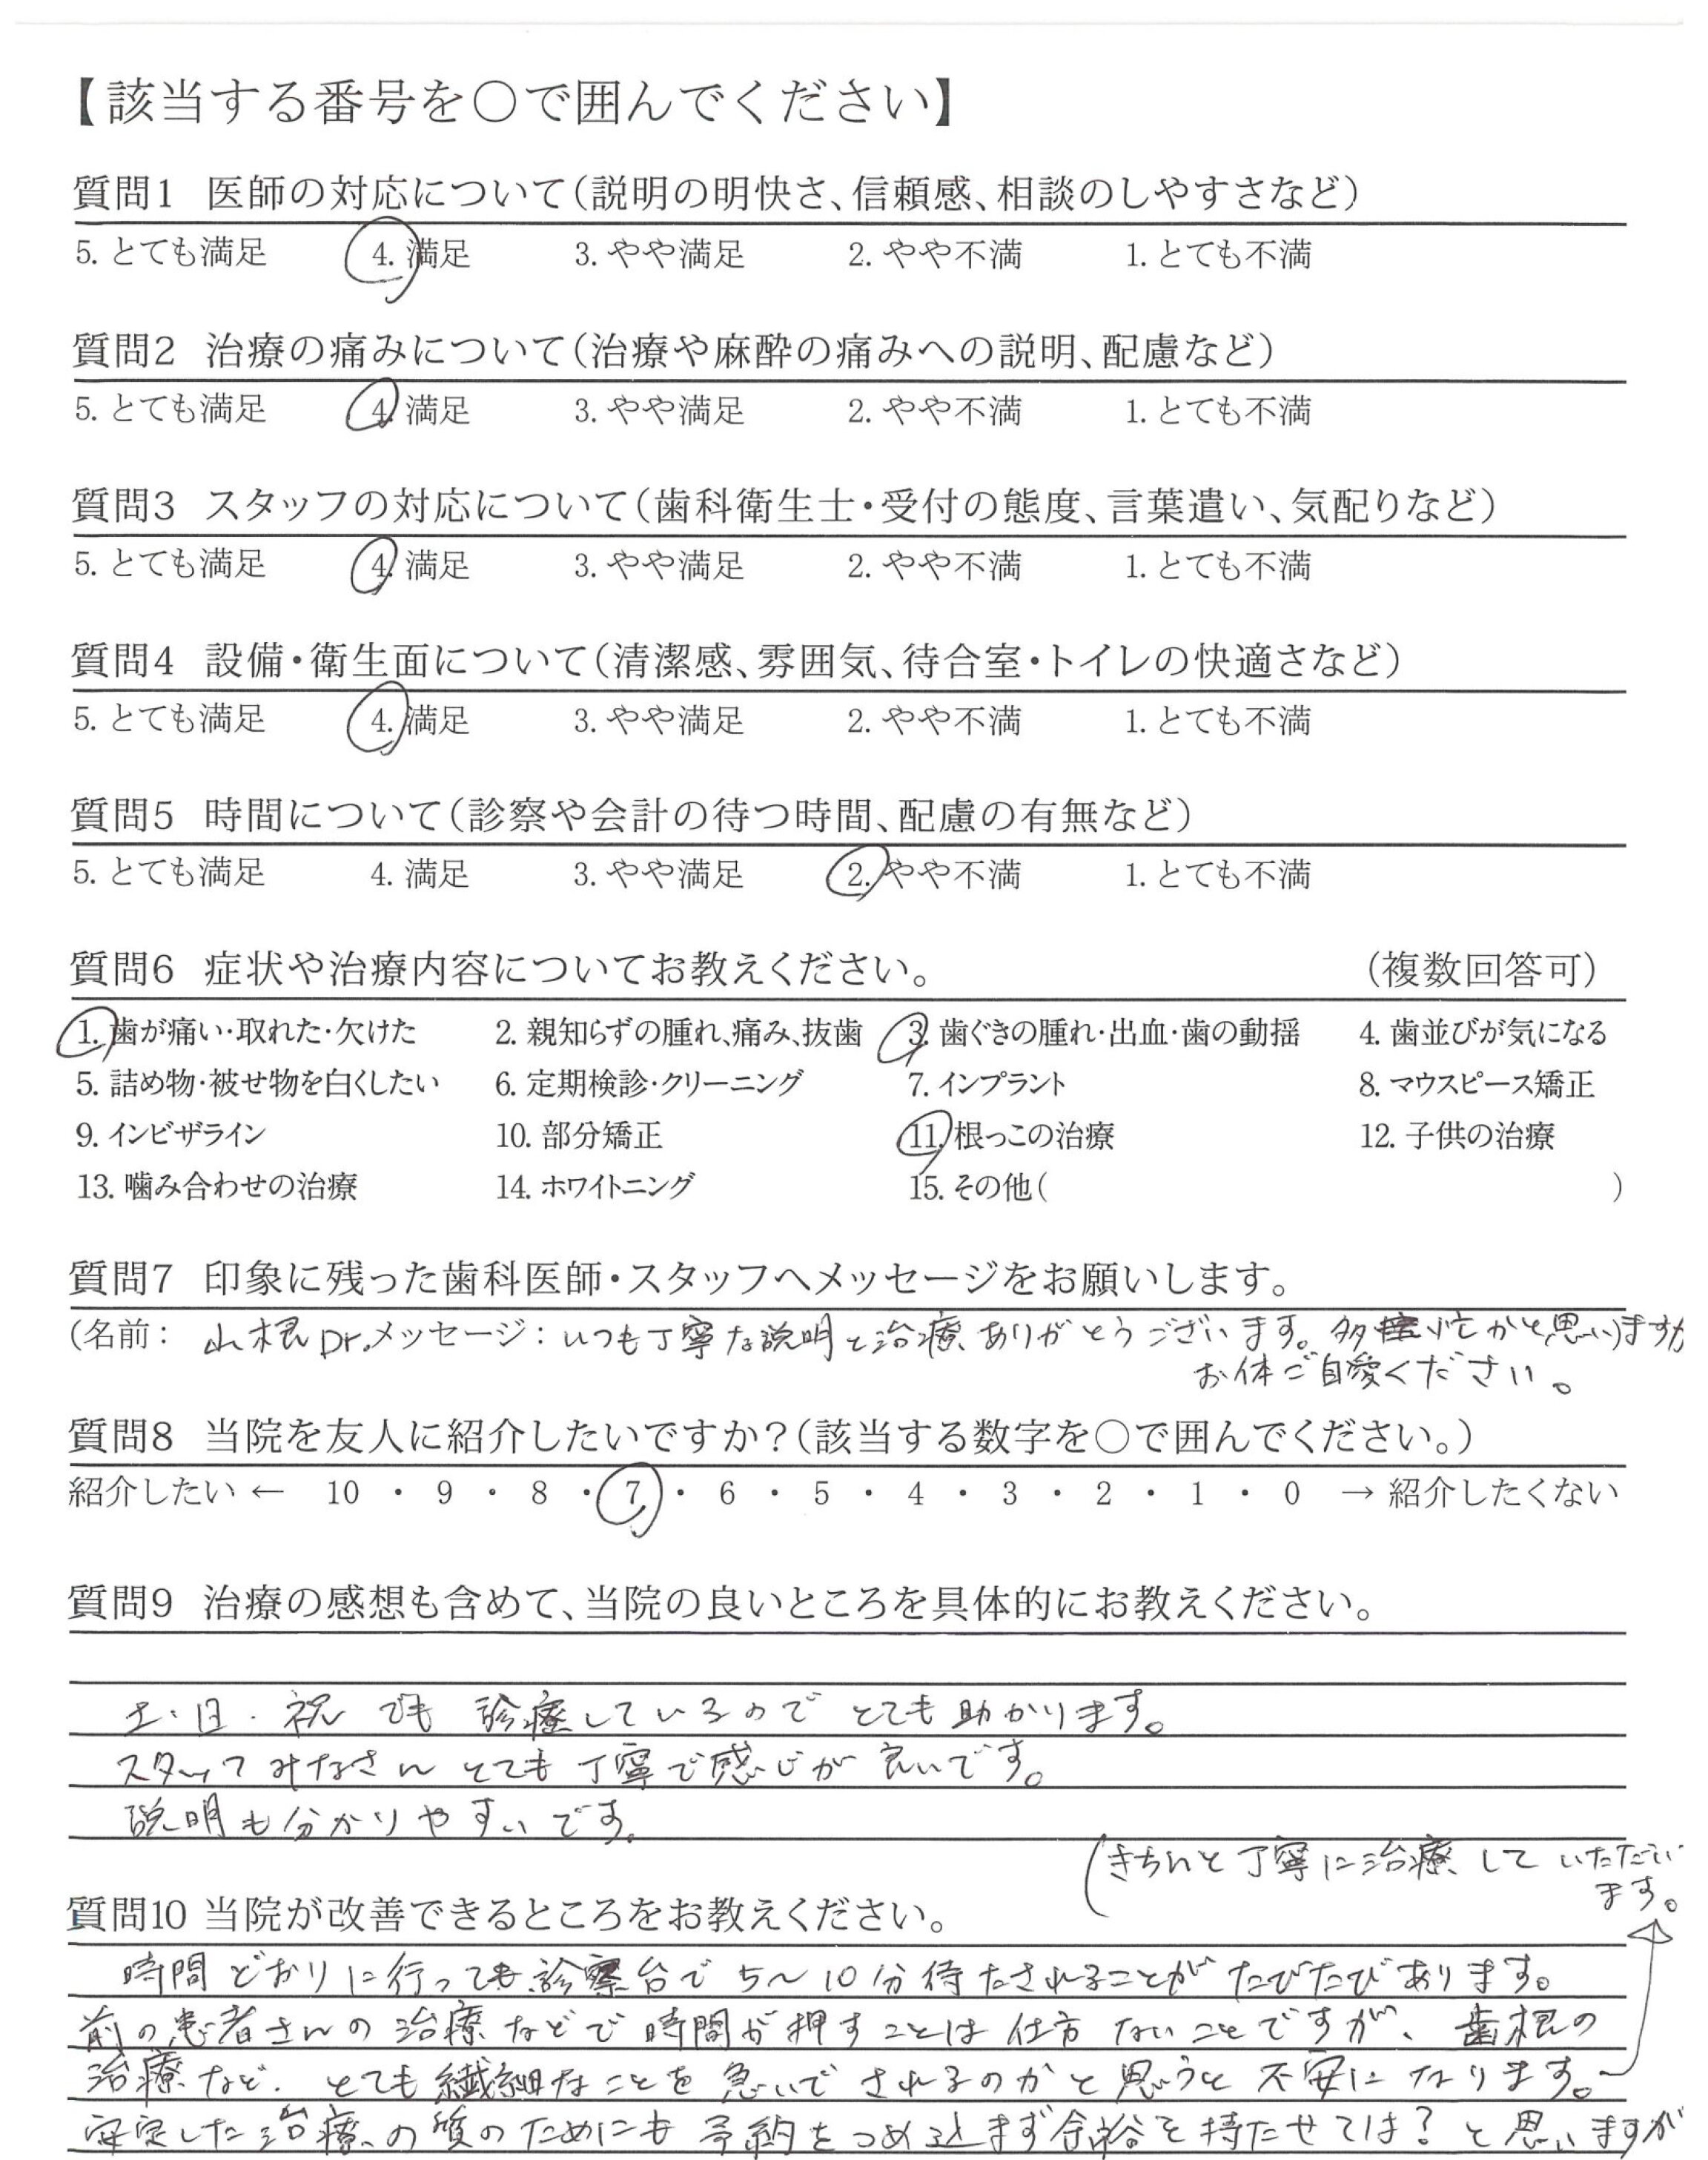 【該当する番号を○で囲んでください】
質問1 医師の対応について(説明の明快さ、信頼感、相談のしやすさなど)
5. とても満足 4. 満足 3. やや満足 2. やや不満 1. とても不満
質問2 治療の痛みについて(治療や麻酔の痛みへの説明、配慮など)
5. とても満足 4. 満足 3. やや満足 2. やや不満 1. とても不満
質問3 スタッフの対応について(歯科衛生士・受付の態度、言葉遣い、気配りなど)
5. とても満足 4. 満足 3. やや満足 2. やや不満 1. とても不満
質問4 設備・衛生面について(清潔感、雰囲気、待合室・トイレの快適さなど)
5. とても満足 4. 満足 3. やや満足 2. やや不満 1. とても不満
質問5 時間について(診察や会計の待つ時間、配慮の有無など)
5. とても満足 4. 満足 3. やや満足 2. やや不満 1. とても不満
質問6 症状や治療内容についてお教えください。 (複数回答可)
1. 歯が痛い・取れた・欠けた 2. 親知らずの腫れ、痛み、抜歯 3. 歯ぐきの腫れ・出血・歯の動揺 4. 歯並びが気になる
5. 詰め物・被せ物を白くしたい 6. 定期検診・クリーニング 7. インプラント 8. マウスピース矯正
9. インビザライン 10. 部分矯正 11. 根っこの治療 12. 子供の治療
13. 噛み合わせの治療 14. ホワイトニング 15. その他( )
質問7 印象に残った歯科医師・スタッフへメッセージをお願いします。
(名前: 山根Dr. メッセージ: いつも丁寧な説明と治療ありがとうございます。多忙かと思いますが
お体ご自愛ください。
質問8 当院を友人に紹介したいですか?(該当する数字を○で囲んでください。)
紹介したい ← 10 ・ 9 ・ 8 ・ 7 ・ 6 ・ 5 ・ 4 ・ 3 ・ 2 ・ 1 ・ 0 → 紹介したくない
質問9 治療の感想も含めて、当院の良いところを具体的にお教えください。
土・日・祝でも診療しているのでとても助かります。
スタッフみなさんとても丁寧で感じが良いです。
説明も分かりやすいです。
(きちんと丁寧に治療していただい
ます。
質問10 当院が改善できるところをお教えください。
時間どおりに行っても診察台で5〜10分待たされることがたびたびあります。
前の患者さんの治療などで時間が押すことは仕方ないことですが、歯根の
治療など、とても繊細なことを急いでされるのかと思うと不安になります。
安定した治療の質のためにも予約をつめ込まず余裕を持たせては?と思いますが